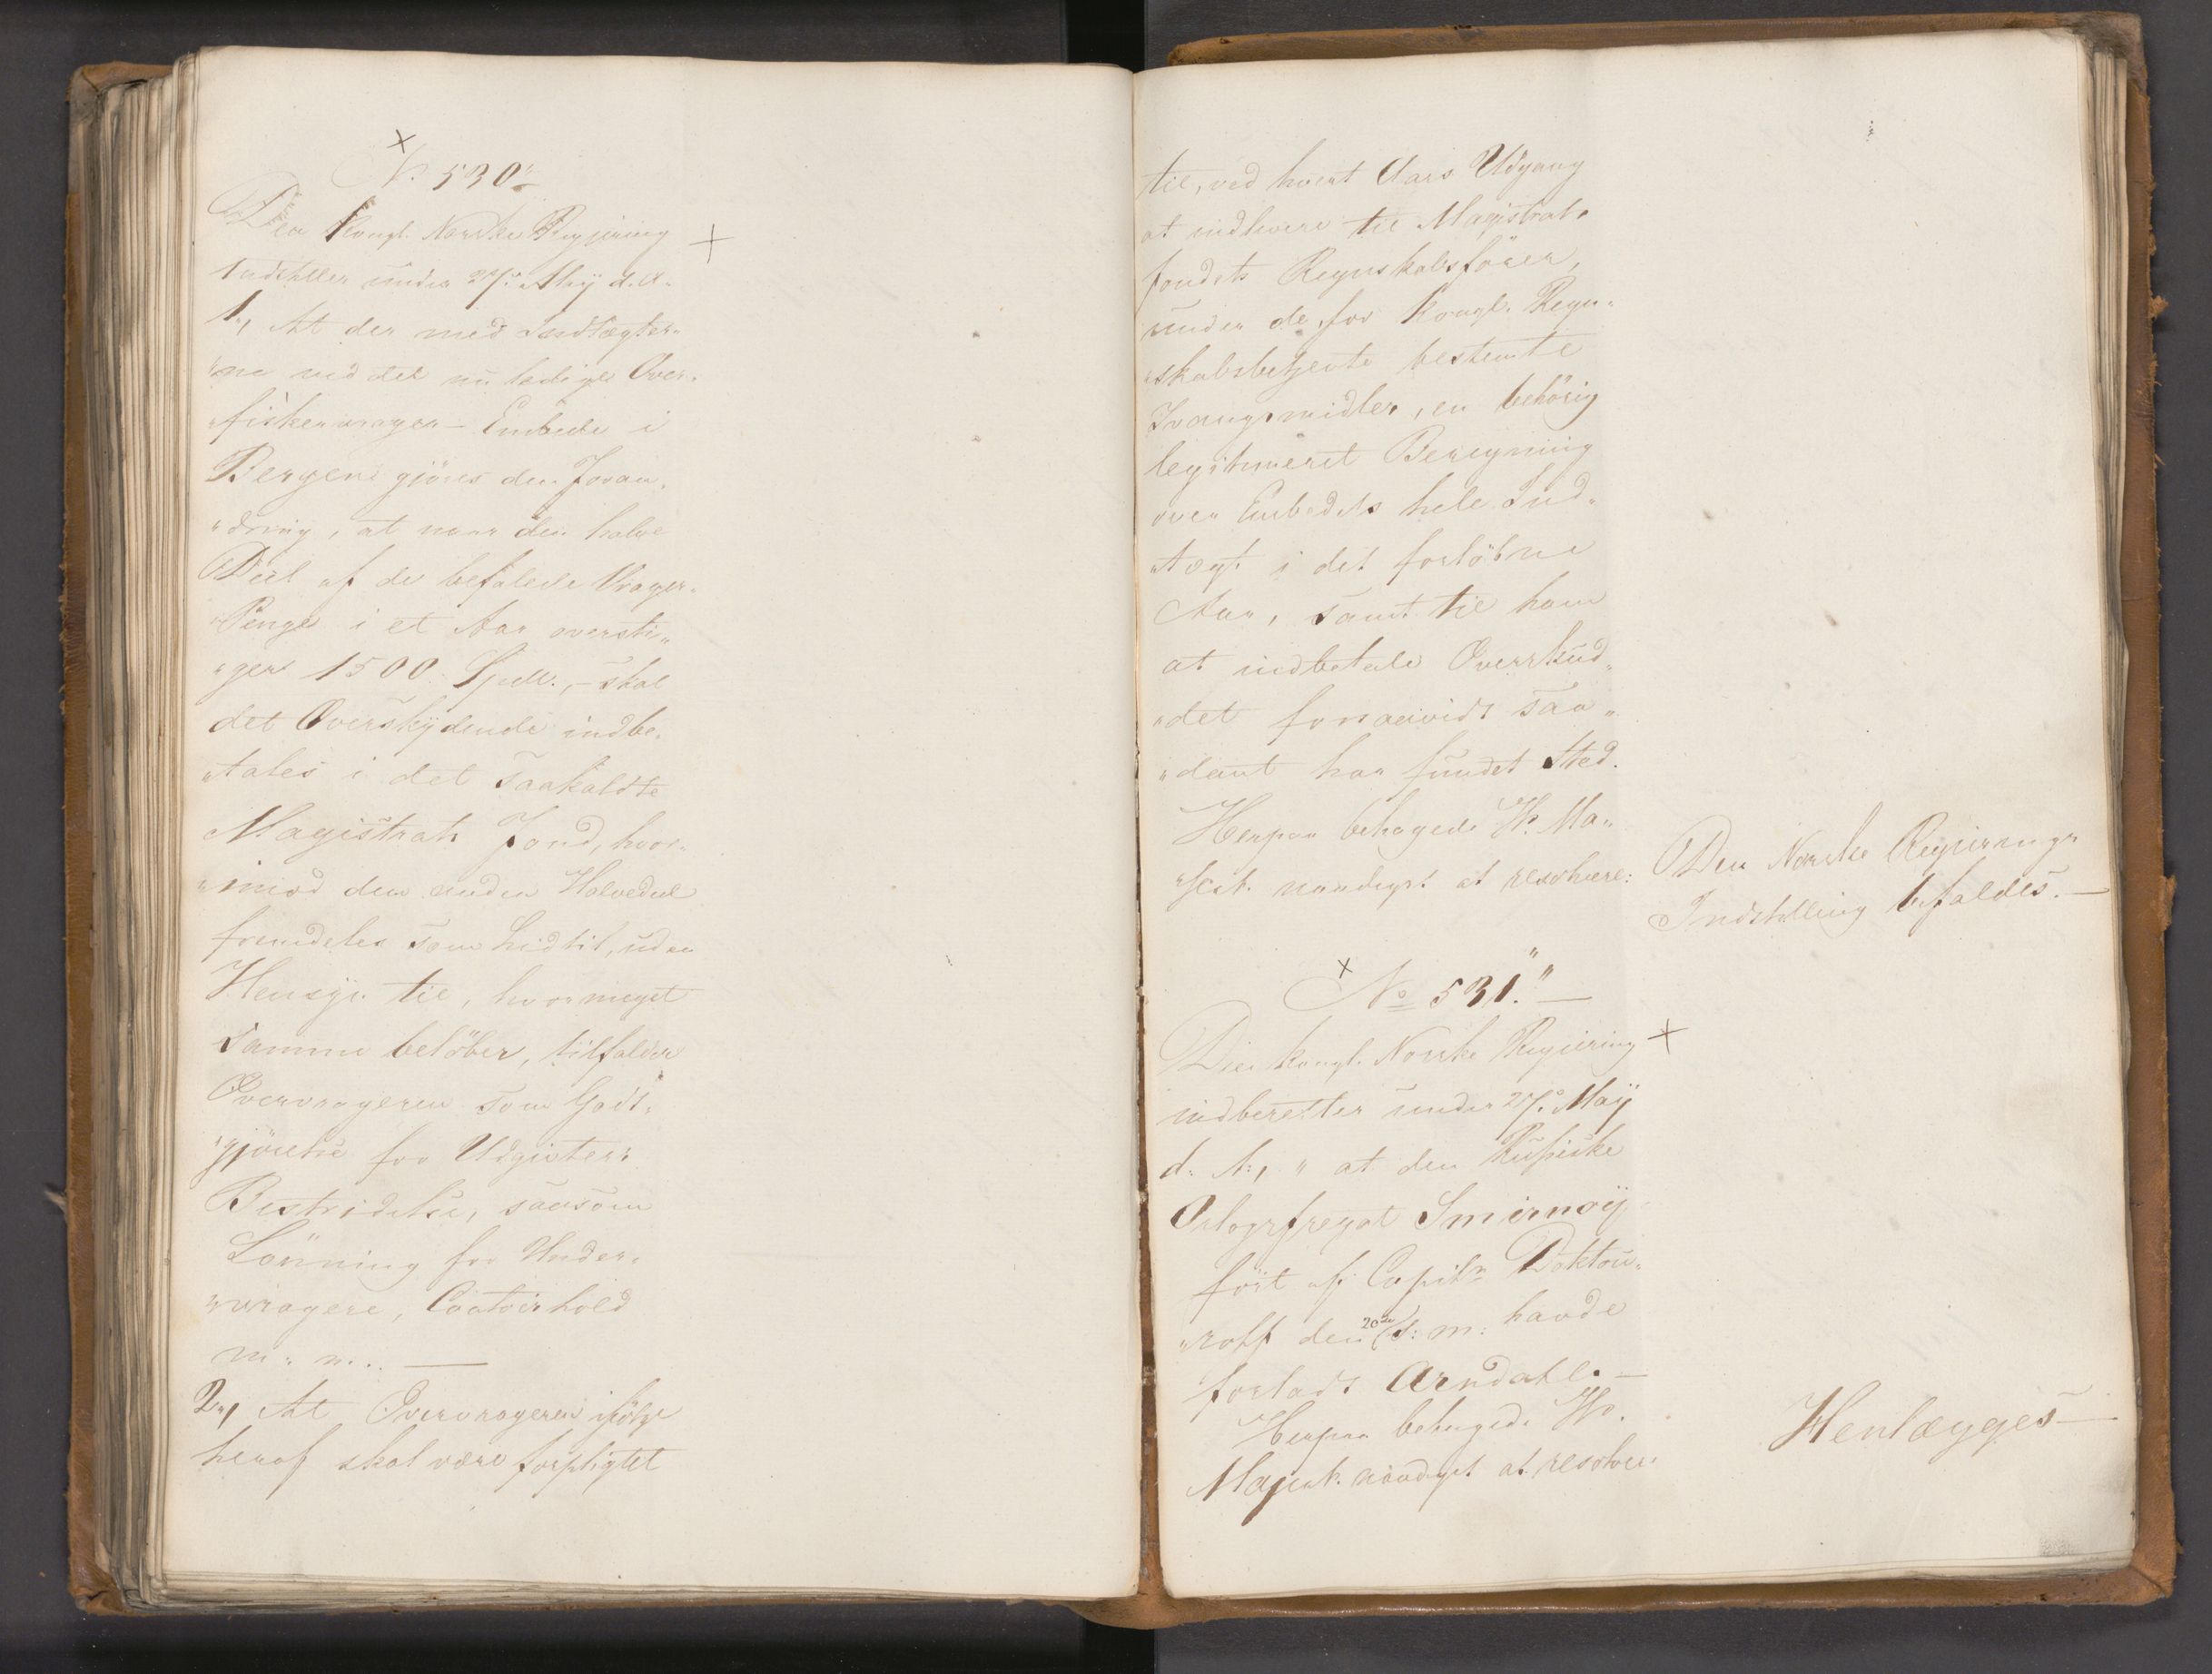 ×
No 530"
Den Kongl. Norske Regjering ×
Indstiller under 27de Maÿ d. A.
1, At der med Indtægter-
"ne ved det nu ledige Over-
fiskevrager-Embede i
Bergen gjöres den Foran-
"dring, at naar den halve
Deel af de befalede Vrager-
"Penge i et Aar oversti-
"ger 1500 Spdlr., - skal
det Overskÿdende indbe-
"tales i det saakaldte
Magistrats Fond, hvor-
"imod den anden Halvedeel
fremdeles som hidtil, uden
Hensÿn til, hvormeget
samme belöber, tilfalder
Overvrageren som Godt-
"gjörelse for Udgivters
Bestridelse, saasom
Lönning for Under-
"vragere, Contoirhold
m: m.. —
2, At Overvrageren ifölge
heraf skal være forpligtet
til, ved hvert Aars Udgang
at indlevere til Magistrats
fondets Regnskabsförer,
under de for Kongl. Regn-
"skabsbetjente bestemte
Tvangsmidler, en behörig
legitimeret Beregning
over Embedets hele Ind-
"tægt i det forlöbne
Aar, samt til ham
at indbetale Overskud-
"det forsaavidt saa-
"dant har fundet Sted.
Herpaa behagede H. Ma-
"jest. naadigst at resolvere:
Den Norske Regjerings
Indstilling befaldes. —
×
No 531." —
Den kongl. Norske Regjering ×
indberetter under 27de Maÿ
d: A:, " at den Russiske
Orlogsfregat Smirnoÿ
fört af Capitn Doktou-
"roff den 20de d: m: havde
forladt Arndahl. —
Herpaa behagede H.
Majest. naadigst at resolvere:
Henlægges —